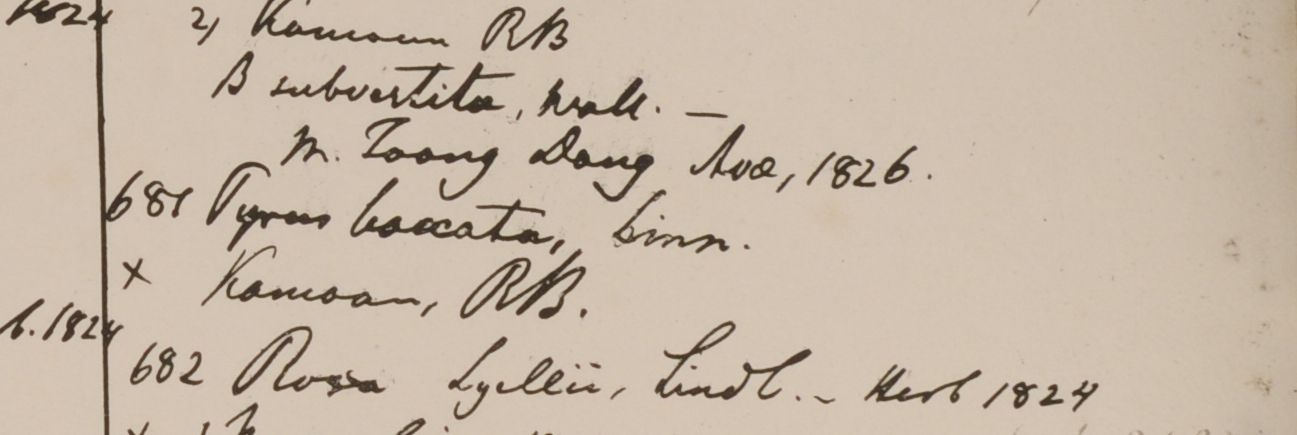 1824
2) Kamoun RB
B subvestita, Wall. —
M. Toong Dong Ava, 1826.
681 Pyrus baccata, Linn.
x Kamoan, RB.
b. 1824
682 Rosa Lyellii, Lindl. - Herb 1824